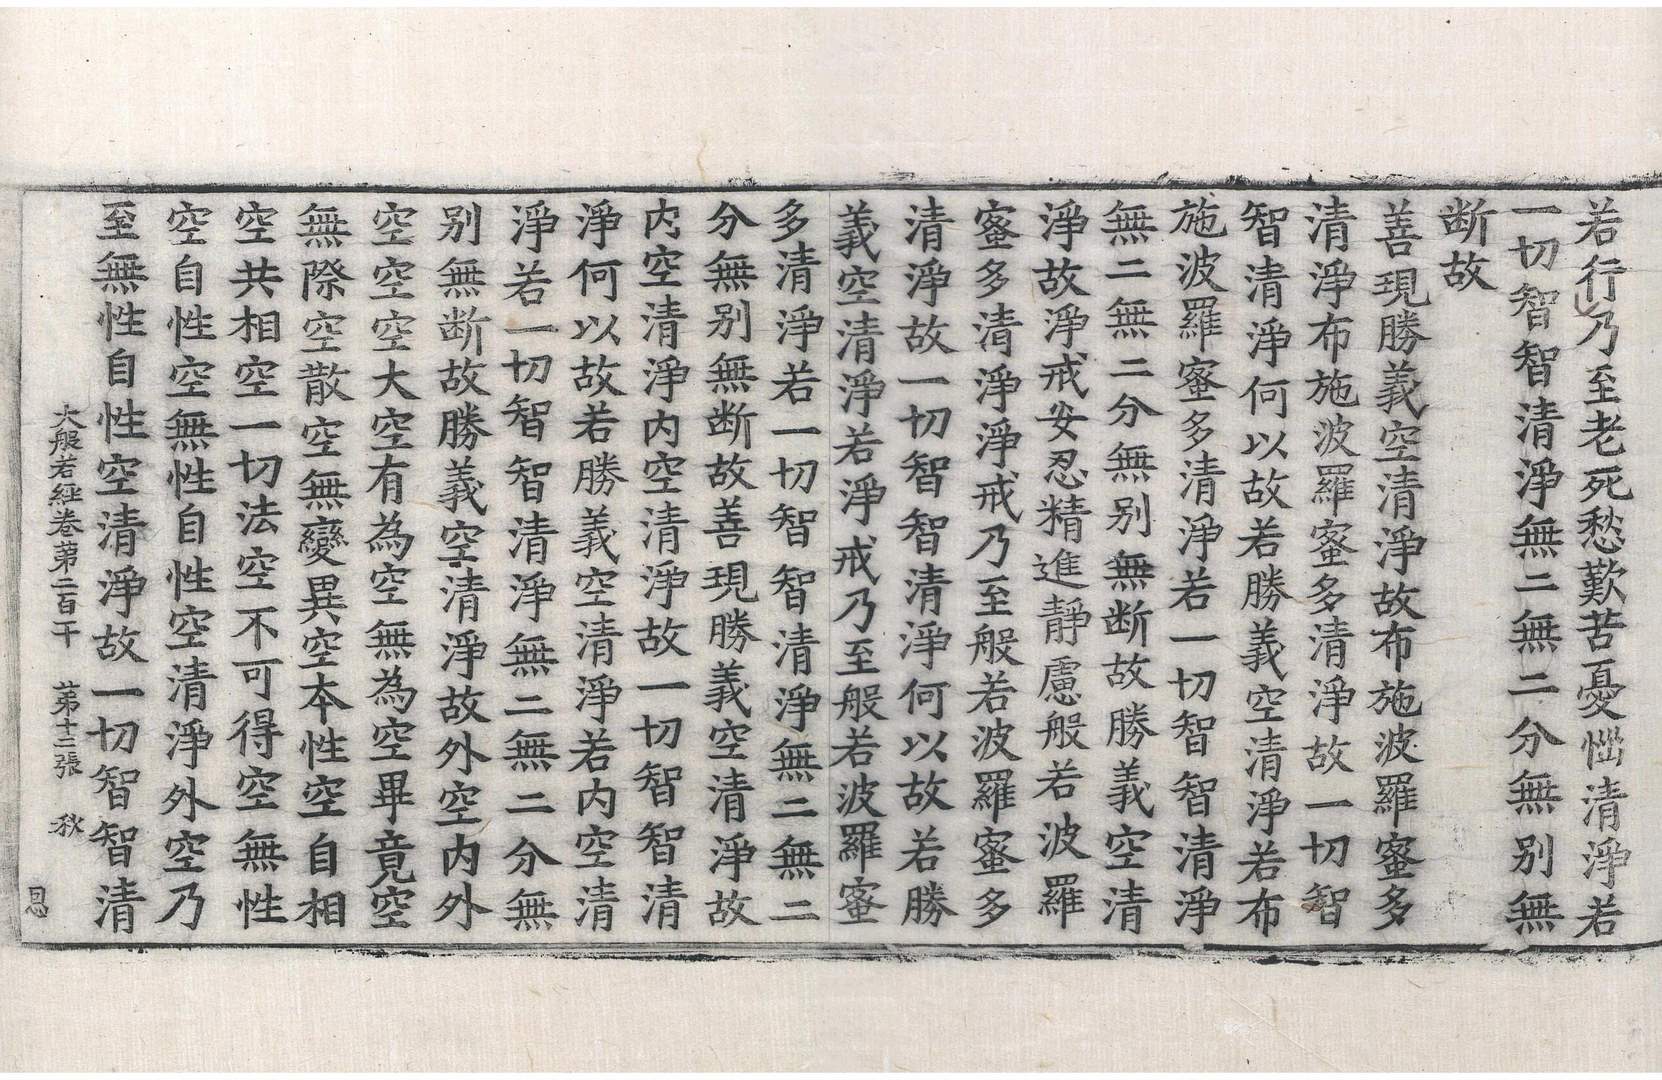 若行乃至老死愁歎苦憂惱清淨若
一切智智清淨無二無二分無別無
断故
善現勝義空清淨故布施波羅蜜多
清淨布施波羅蜜多清淨故一切智
智清淨何以故若勝義空清淨若布
施波羅蜜多清淨若一切智智清淨
無二無二分無別無断故勝義空清
淨故淨戒安忍精進靜慮般若波羅
蜜多清淨淨戒乃至般若波羅蜜多
清淨故一切智智清淨何以故若勝
義空清淨若淨戒乃至般若波羅蜜
多清淨若一切智智清淨無二無二
分無別無断故善現勝義空清淨故
内空清淨内空清淨故一切智智清
淨何以故若勝義空清淨若内空清
淨若一切智智清淨無二無二分無
別無断故勝義空清淨故外空内外
空空空大空有為空無為空畢竟空
無際空散空無變異空本性空自相
空共相空一切法空不可得空無性
空自性空無性自性空清淨外空乃
至無性自性空清淨故一切智智清
大般若經卷苐二百 苐十二張 秋